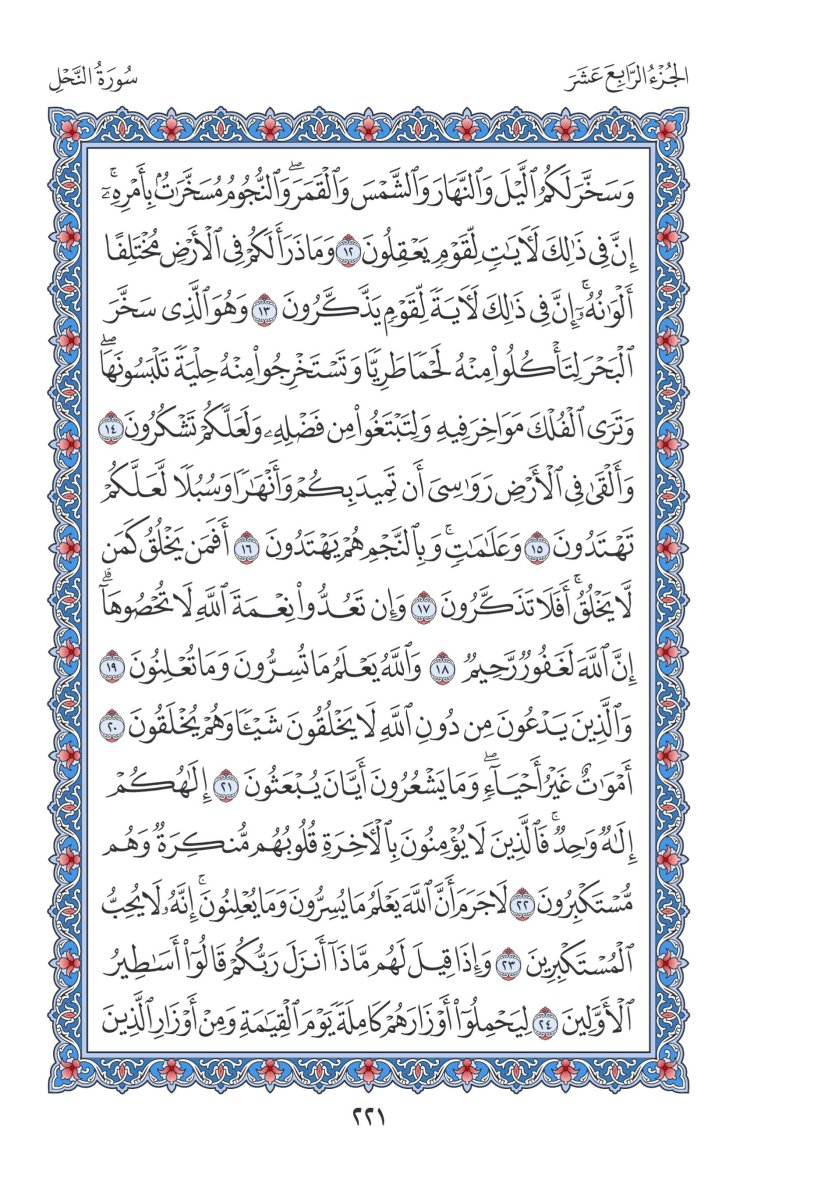 الجُزْءُ الرَّابِعَ عَشَرَ
سُورَةُ النَّحْلِ
وَسَخَّرَ لَكُمُ ٱلَّيْلَ وَٱلنَّهَارَ وَٱلشَّمْسَ وَٱلْقَمَرَۖ وَٱلنُّجُومُ مُسَخَّرَٰتُۢ بِأَمْرِهِۦٓۚ
إِنَّ فِى ذَٰلِكَ لَأٓيَٰتٖ لِّقَوْمٖ يَعْقِلُونَ ١٢ وَمَا ذَرَأَ لَكُمْ فِى ٱلْأَرْضِ مُخْتَلِفًا
أَلْوَٰنُهُۥٓۚ إِنَّ فِى ذَٰلِكَ لَأٓيَةٗ لِّقَوْمٖ يَذَّكَّرُونَ ١٣ وَهُوَ ٱلَّذِى سَخَّرَ
ٱلْبَحْرَ لِتَأْكُلُوا۟ مِنْهُ لَحْمٗا طَرِيّٗا وَتَسْتَخْرِجُوا۟ مِنْهُ حِلْيَةٗ تَلْبَسُونَهَاۖ
وَتَرَى ٱلْفُلْكَ مَوَاخِرَ فِيهِ وَلِتَبْتَغُوا۟ مِن فَضْلِهِۦ وَلَعَلَّكُمْ تَشْكُرُونَ ١٤
وَأَلْقَىٰ فِى ٱلْأَرْضِ رَوَٰسِىَ أَن تَمِيدَ بِكُمْ وَأَنْهَٰرٗا وَسُبُلٗا لَّعَلَّكُمْ
تَهْتَدُونَ ١٥ وَعَلَٰمَٰتٖۚ وَبِٱلنَّجْمِ هُمْ يَهْتَدُونَ ١٦ أَفَمَن يَخْلُقُ كَمَن
لَّا يَخْلُقُۚ أَفَلَا تَذَكَّرُونَ ١٧ وَإِن تَعُدُّوا۟ نِعْمَةَ ٱللَّهِ لَا تُحْصُوهَآۗ
إِنَّ ٱللَّهَ لَغَفُورٞ رَّحِيمٞ ١٨ وَٱللَّهُ يَعْلَمُ مَا تُسِرُّونَ وَمَا تُعْلِنُونَ ١٩
وَٱلَّذِينَ يَدْعُونَ مِن دُونِ ٱللَّهِ لَا يَخْلُقُونَ شَيْـٔٗا وَهُمْ يُخْلَقُونَ ٢٠
أَمْوَٰتٌ غَيْرُ أَحْيَآءٖۖ وَمَا يَشْعُرُونَ أَيَّانَ يُبْعَثُونَ ٢١ إِلَٰهُكُمْ
إِلَٰهٞ وَٰحِدٞۚ فَٱلَّذِينَ لَا يُؤْمِنُونَ بِٱلْأٓخِرَةِ قُلُوبُهُم مُّنكِرَةٞ وَهُم
مُّسْتَكْبِرُونَ ٢٢ لَا جَرَمَ أَنَّ ٱللَّهَ يَعْلَمُ مَا يُسِرُّونَ وَمَا يُعْلِنُونَۚ إِنَّهُۥ لَا يُحِبُّ
ٱلْمُسْتَكْبِرِينَ ٢٣ وَإِذَا قِيلَ لَهُم مَّاذَآ أَنزَلَ رَبُّكُمْ قَالُوٓا۟ أَسَٰطِيرُ
ٱلْأَوَّلِينَ ٢٤ لِيَحْمِلُوٓا۟ أَوْزَارَهُمْ كَامِلَةٗ يَوْمَ ٱلْقِيَٰمَةِ وَمِنْ أَوْزَارِ ٱلَّذِينَ
٢٢١